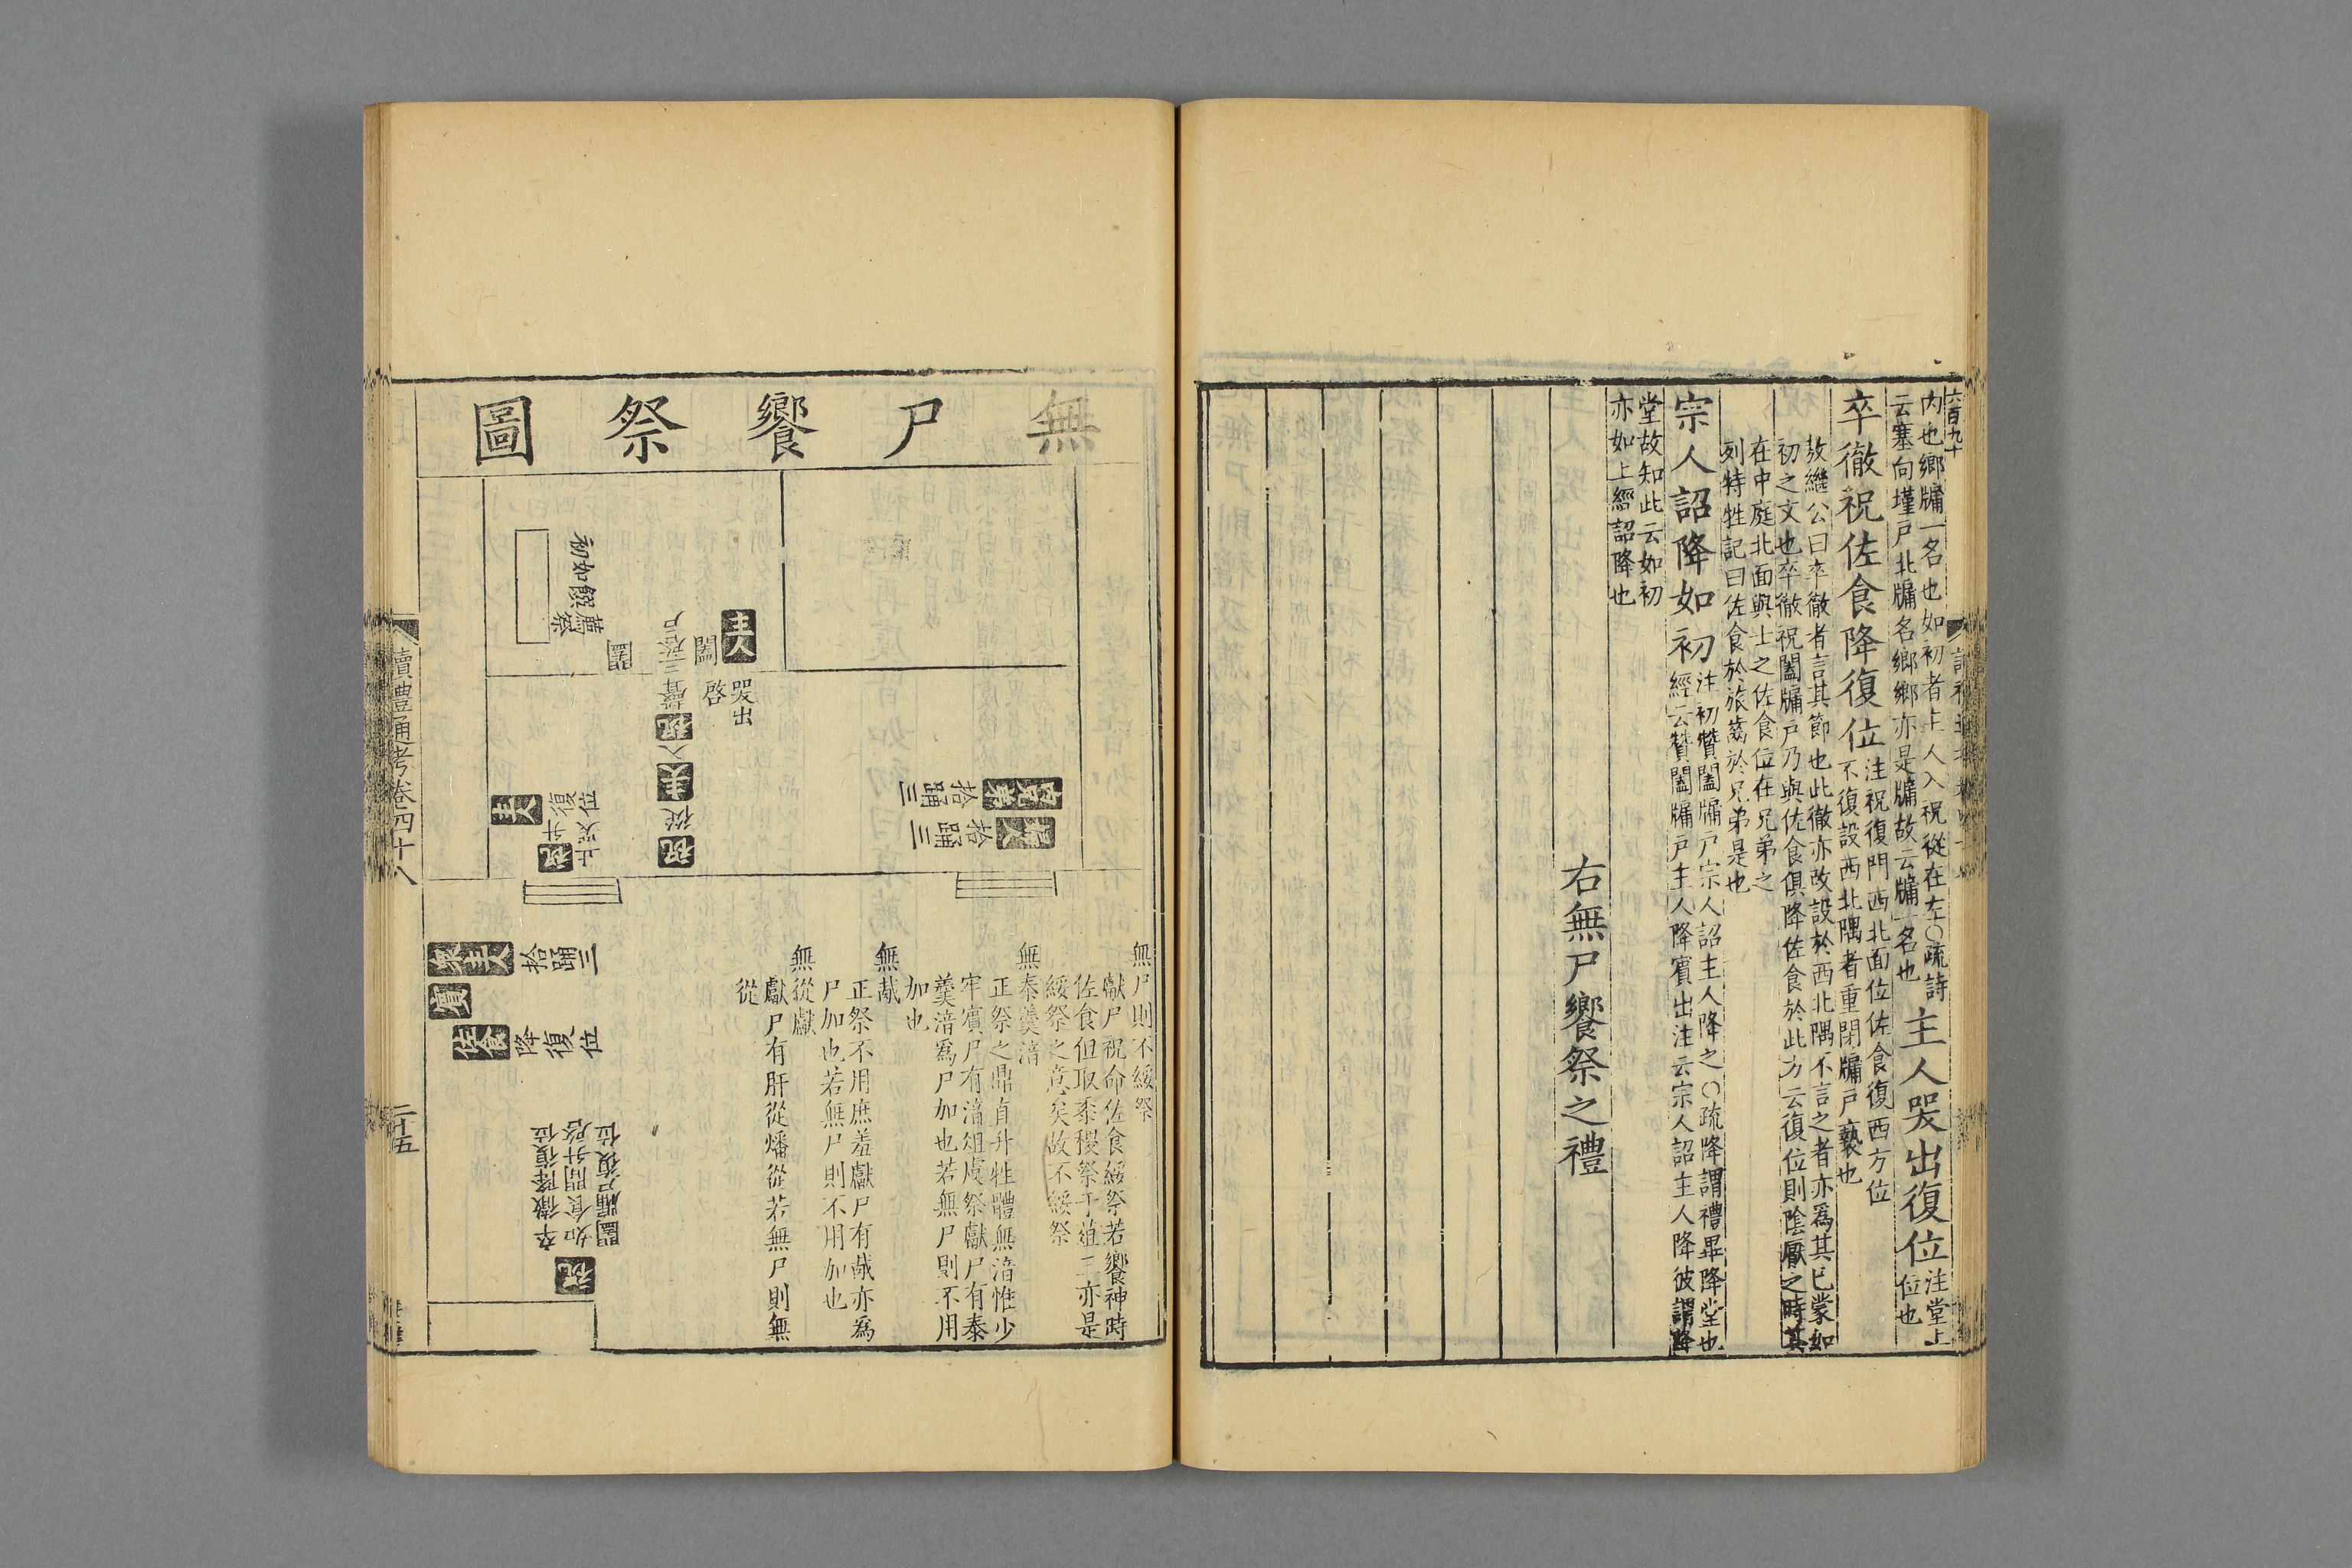 六百九十
內也鄉牖一名也如初者主人入祝從在左○疏詩
云塞向墐戶北牖名鄉鄉亦是牖故云牖一名也
主人哭出復位
注堂上
位也
卒徹祝佐食降復位
注祝復門西北面位佐食復西方位
不復設西北隅者重閉牖戶褻也
敖繼公曰卒徹者言其節也此徹亦改設於西北隅不言之者亦爲其已蒙如
初之文也卒徹祝闔牖戶乃與佐食俱降佐食於此方云復位則陰厭之時其
在中庭北面與士之佐食位在兄弟之
列特牲記曰佐食於旅齒於兄弟是也
宗人詔降如初
注初贊闔牖戶宗人詔主人降之○疏降謂禮畢降堂也
經云贊闔牖戶主人降賓出注云宗人詔主人降彼謂降
堂故知此云如初
亦如上經詔降也
右無尸饗祭之禮
無尸饗祭圖
初如饌薦祭
闔
戶
主人
哭出
啓
祝
入
主人
從
祝
主人
復位
祝
升止哭
拾踊三
拾踊三
拾踊三
賓
佐食
降復位
卒徹降復位
如食間升啓
闔牖戶復位
祝
無尸則不綏祭
獻尸祝命佐食綏祭若饗神時
佐食但取黍稷祭于苴三亦是
綏祭之意矣故不綏祭
無泰羹湆
正祭之鼎自升牲體無湆惟少
牢賓尸有湆俎虞祭獻尸有泰
羹湆爲尸加也若無尸則不用
加也
無胾
正祭不用庶羞獻尸有胾亦爲
尸加也若無尸則不用加也
無從獻
獻尸有肝從燔從若無尸則無
從
讀禮通考卷四十八
二十五